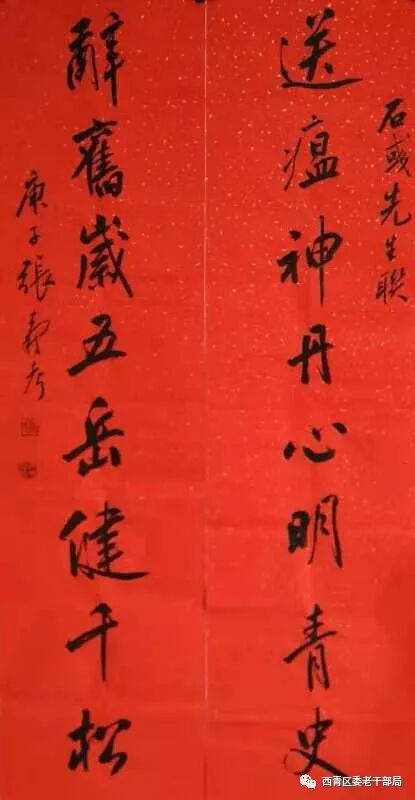 石彧先生聯
送瘟神丹心明青史
辭舊歲五岳健千松
庚子張壽考
西青区委老干部局